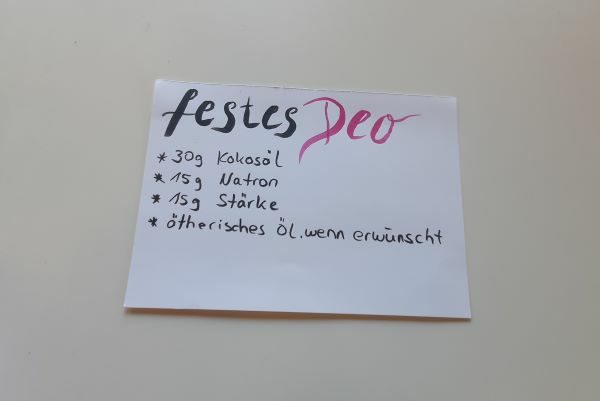 festes Deo
* 30g Kokosöl
* 15g Natron
* 15g Stärke
* ötherisches Öl.wenn erwünscht